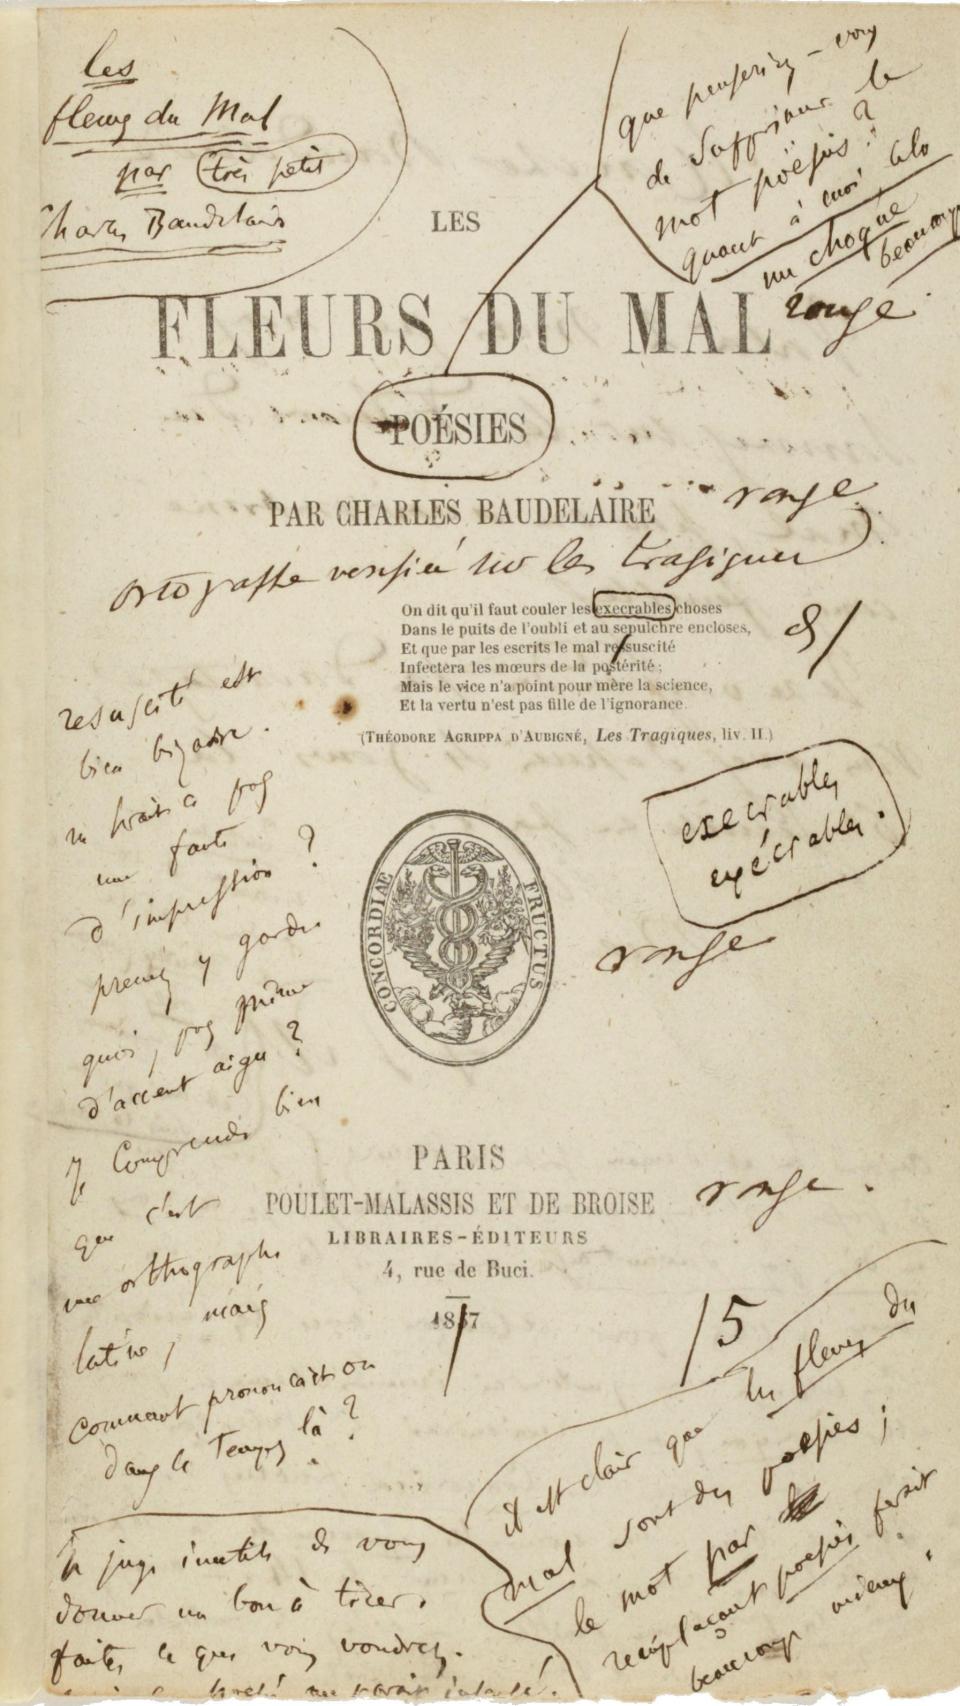 les
fleurs du Mal
par très petit
Charles Baudelaire
que penseriez-vous
de supprimer le
mot poësies ?
quant à moi, cela
me choque
beaucoup
LES
FLEURS DU MAL
rouge.
POÉSIES
PAR CHARLES BAUDELAIRE
rouge.
ortografe vérifiée sur les tragiques
On dit qu'il faut couler les execrables choses
Dans le puits de l'oubli et au sepulchre encloses,
Et que par les escrits le mal resuscité
Infectera les mœurs de la postérité ;
Mais le vice n'a point pour mère la science,
Et la vertu n'est pas fille de l'ignorance.
(THÉODORE AGRIPPA D'AUBIGNÉ, Les Tragiques, liv. II.)
resuscité est
bien bizarre.
ne serait-ce pas
une faute
d'impression ?
prenez y garde
quoi, pas même
d'accent aigu ?
Je comprends bien
que c'est
une orthographe
latine, mais
comment prononçait on
dans ce temps là ?
execrables
exécrables.
rouge
CONCORDIAE FRUCTUS
PARIS
POULET-MALASSIS ET DE BROISE
rouge.
LIBRAIRES-ÉDITEURS
4, rue de Buci.
1857
/5
il est clair que les fleurs du
mal sont des poësies ;
le mot par
remplaçant poësies ferait
beaucoup mieux.
Je juge inutile de vous
donner un bon à tirer.
faites ce que vous voudrez.